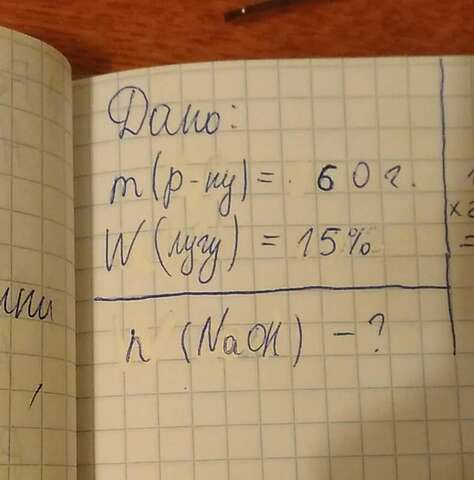 Дано:
m(р-ну) = 60 г.
W(лугу) = 15%
n (NaOH) - ?